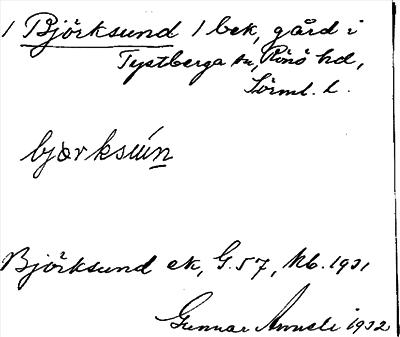 / Björksund / bek, gård i
Tystberga sn, Rönö hd,
Sörml. l.
bjørksún
Björksund ek, G.57, Kb. 1931
Gunnar 1932